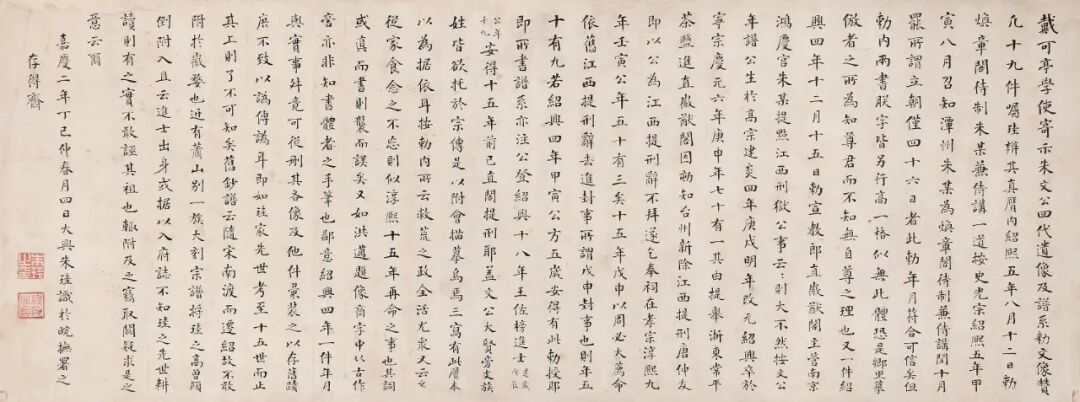 戴可亭學使寄示朱文公四代遺像及譜系勅文像贊
凡十九件囑珪辨其真贋內紹熙五年八月十二日勅
煥章閣待制朱某兼侍講一道按史光宗紹熙五年甲
寅八月召知潭州朱某為煥章閣待制兼侍講閏十月
罷所謂立朝僅四十六日者此勅年月符合可信矣但
勅內兩書朕字皆另行高一格似無此體恐是鄉里摹
倣者之所為知尊君而不知無自尊之理也又一件紹
興四年十二月十五日勅宣教郎直徽猷閣主管南京
鴻慶宮朱某提點江西刑獄公事云云則大不然按文公
年譜公生於高宗建炎四年庚戌明年改元紹興卒於
寧宗慶元六年庚申年七十有一其由提舉浙東常平
茶鹽進直徽猷閣因劾知台州新除江西提刑唐仲友
即以公為江西提刑辭不拜遂乞奉祠在孝宗淳熙九
年壬寅公年五十有三矣十五年戊申以周必大薦命
依舊江西提刑辭去進封事所謂戊申封事也則年五
十有九若紹興四年甲寅公方五歲安得有此勅授耶
即所書譜系亦注公登紹興十八年王佐榜進士是歲戊辰
公年十九安得十五年前已直閣提刑耶蓋文公大賢旁支族
姓皆欲托於宗傳是以附會描摹烏焉三寫有此贋本
以為據依耳按勅內所云救荒之政全活尤眾又云爻
從家食念之不忘則似淳熙十五年再命之事也其詞
或真而書則襲而誤矣又如洪邁題像商字中從古作
啻亦非知書體者之手筆也鄙意紹興四年一件年月
與實事舛竟可從刪其各像及他件彙裝之以存舊蹟
庶不致以譌傳譌耳即如珪家先世考至十五世而止
其上則了不可知矣舊鈔譜云隨宋南渡而遷紹故不敢
附於徽婺也近有蕭山別一族大刻宗譜將珪之高曾顯
倒附入且云進士出身或據以入府誌不知珪之先世耕
讀則有之實不敢誣其祖也輒附及之竊取闕疑求是之
意云爾
嘉慶二年丁巳仲春月四日大興朱珪識於皖撫署之
存得齋